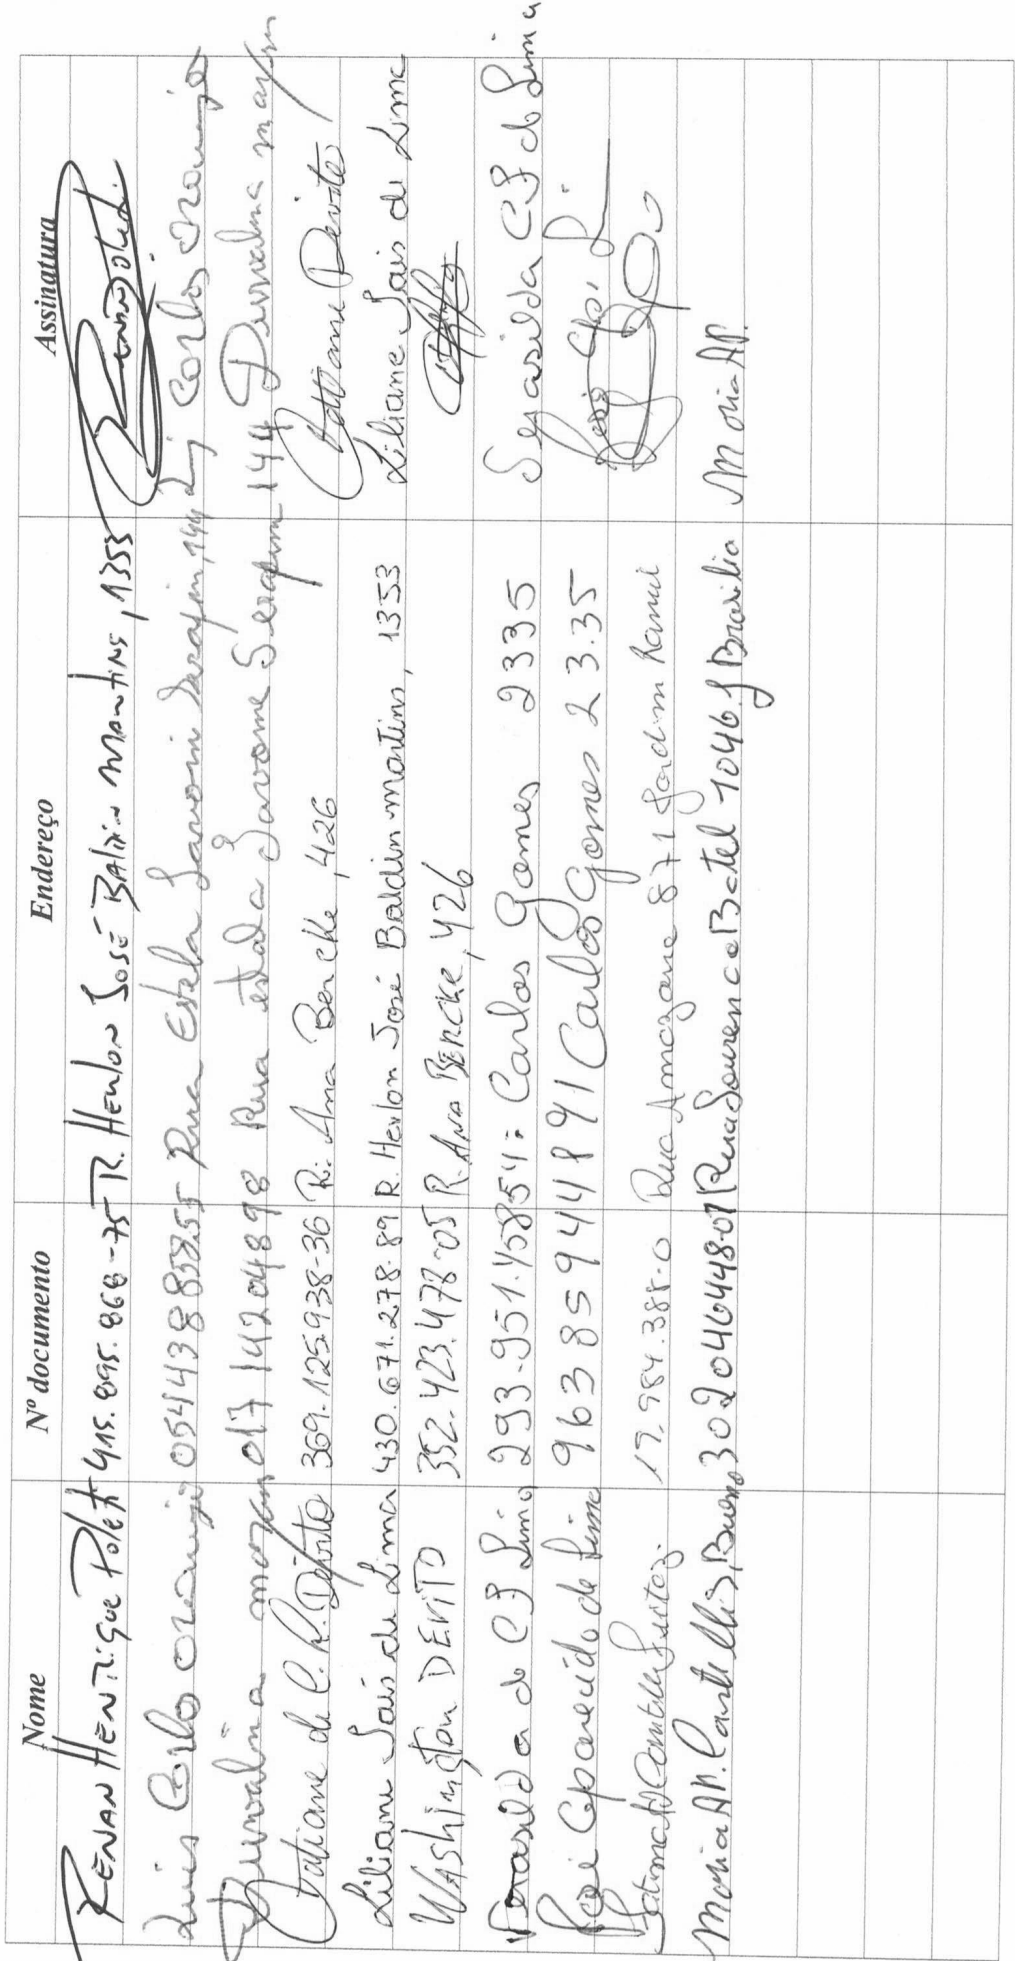 Nome Nº documento Endereço Assinatura
RENAN HENRIQUE Poleti 415.895.868-75 R. Herlon José Baldin Martins, 1353
Luis Carlo Araujo 05443883855 Rua Estela Savoini Serafim, 144 Luis Carlos Araujo
Durvalina 01714204898 Rua Serafim 144 Durvalina
Tatiane de C. R. Devito 369.125.938-36 R: Ana Bercke, 426 Tatiane Devito
Liliane Lais de Lima 430.671.278-89 R. Herlon José Baldin martins, 1353 Liliane Lais de Lima
WAShington DEViTO 352.423.478-05 R. Ana BERCKE, 426
293-951.458-54 = Carlos Gomes 2335
Aparecido de Lima 96385944891 Carlos Gomes 23.35
19.984.388-0 Rua Amazona 871 Jardim
Maria AP. Bueno 302046448-01 Rua Lourenço Batel 1046 J Brasilia Maria AP.